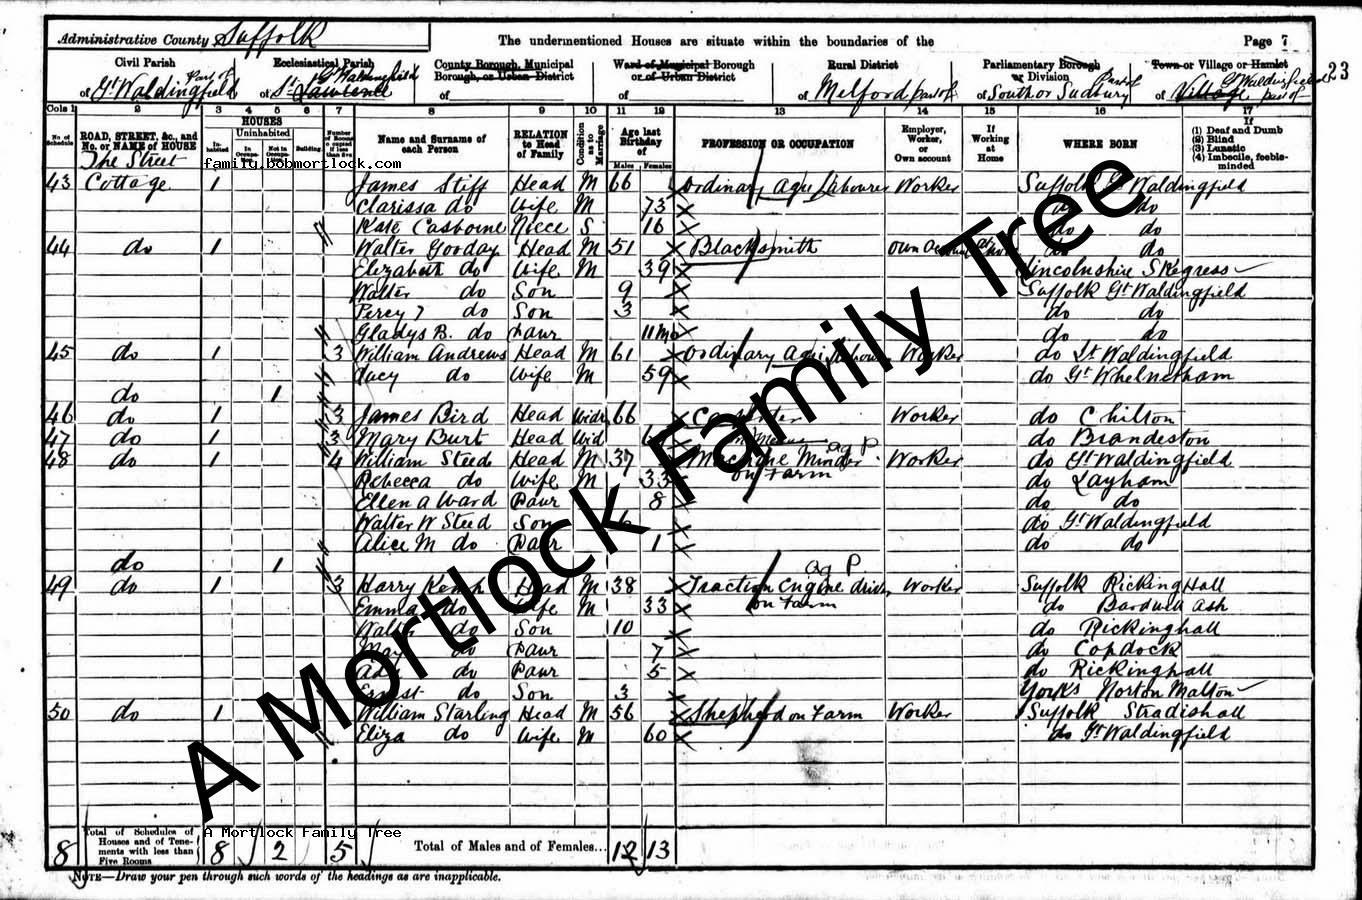 Administrative County Suffolk
The undermentioned Houses are situate within the boundaries of the
Page 7
23
Civil Parish
Ecclesiastical Parish
County Borough, Municipal Borough, or Urban District
Ward of Municipal Borough or of Urban District
Rural District
Parliamentary Borough or Division
Town or Village or Hamlet
Part of
of Gt Waldingfield
of St Lawrence Gt Waldingfield
of
of
of Melford part of
of South or Sudbury Part of
of Village Gt Waldingfield part of
Cols 1 2 3 4 5 6 7 8 9 10 11 12 13 14 15 16 17
No. of Schedule
ROAD, STREET, &c., and No. or NAME of HOUSE
HOUSES
Inhabited
Uninhabited
In Occupation
Not in Occupation
Building
Number of Rooms occupied if less than five
Name and Surname of each Person
RELATION to Head of Family
Condition as to Marriage
Age last Birthday of
Males Females
PROFESSION OR OCCUPATION
Employer, Worker, or Own account
If Working at Home
WHERE BORN
If
(1) Deaf and Dumb
(2) Blind
(3) Lunatic
(4) Imbecile, feeble-minded
The Street
family.bobmortlock.com
43 Cottage 1 James Stiff Head M 66 Ordinary Agri Labourer Worker Suffolk Gt Waldingfield
Clarissa do Wife M 73 do do
Kate Casborne Niece S 16 do do
44 do 1 Walter Gooday Head M 51 Blacksmith Own Account at home do do
Elizabeth do Wife M 39 Lincolnshire Skegness
Walter do Son 9 Suffolk Gt Waldingfield
Percy J do Son 3 do do
Gladys B. do Daur 11 Mo do do
45 do 1 3 William Andrews Head M 61 Ordinary Agri Labour Worker do Lt Waldingfield
Lucy do Wife M 59 do Gt Whelnetham
do 1
46 do 1 3 James Bird Head Widr 66 Carpenter Worker do Chilton
47 do 1 3 Mary Burt Head Wid do Brandeston
48 do 1 4 William Steed Head M 37 Machine Minder on Farm ag P Worker do Gt Waldingfield
Rebecca do Wife M 33 do Layham
Ellen A Ward Daur 8 do do
Walter W Steed Son 6 do Gt Waldingfield
Alice M do Daur 1 do do
do 1
ag P
49 do 1 3 Harry Kemp Head M 38 Traction Engine driver on Farm Worker Suffolk Rickinghall
Emma do Wife M 33 do Bardwell Ash
Walter do Son 10 do Rickinghall
May do Daur 7 do Copdock
Ada do Daur 5 do Rickinghall
Ernest do Son 3 Yorks Norton Malton
50 do 1 William Starling Head M 56 Shepherd on Farm Worker Suffolk Stradishall
Eliza do Wife M 60 do Gt Waldingfield
A Mortlock Family Tree
A Mortlock Family Tree
8 Total of Schedules of Houses and of Tenements with less than Five Rooms 8 2 5 Total of Males and of Females... 12 13
NOTE—Draw your pen through such words of the headings as are inapplicable.